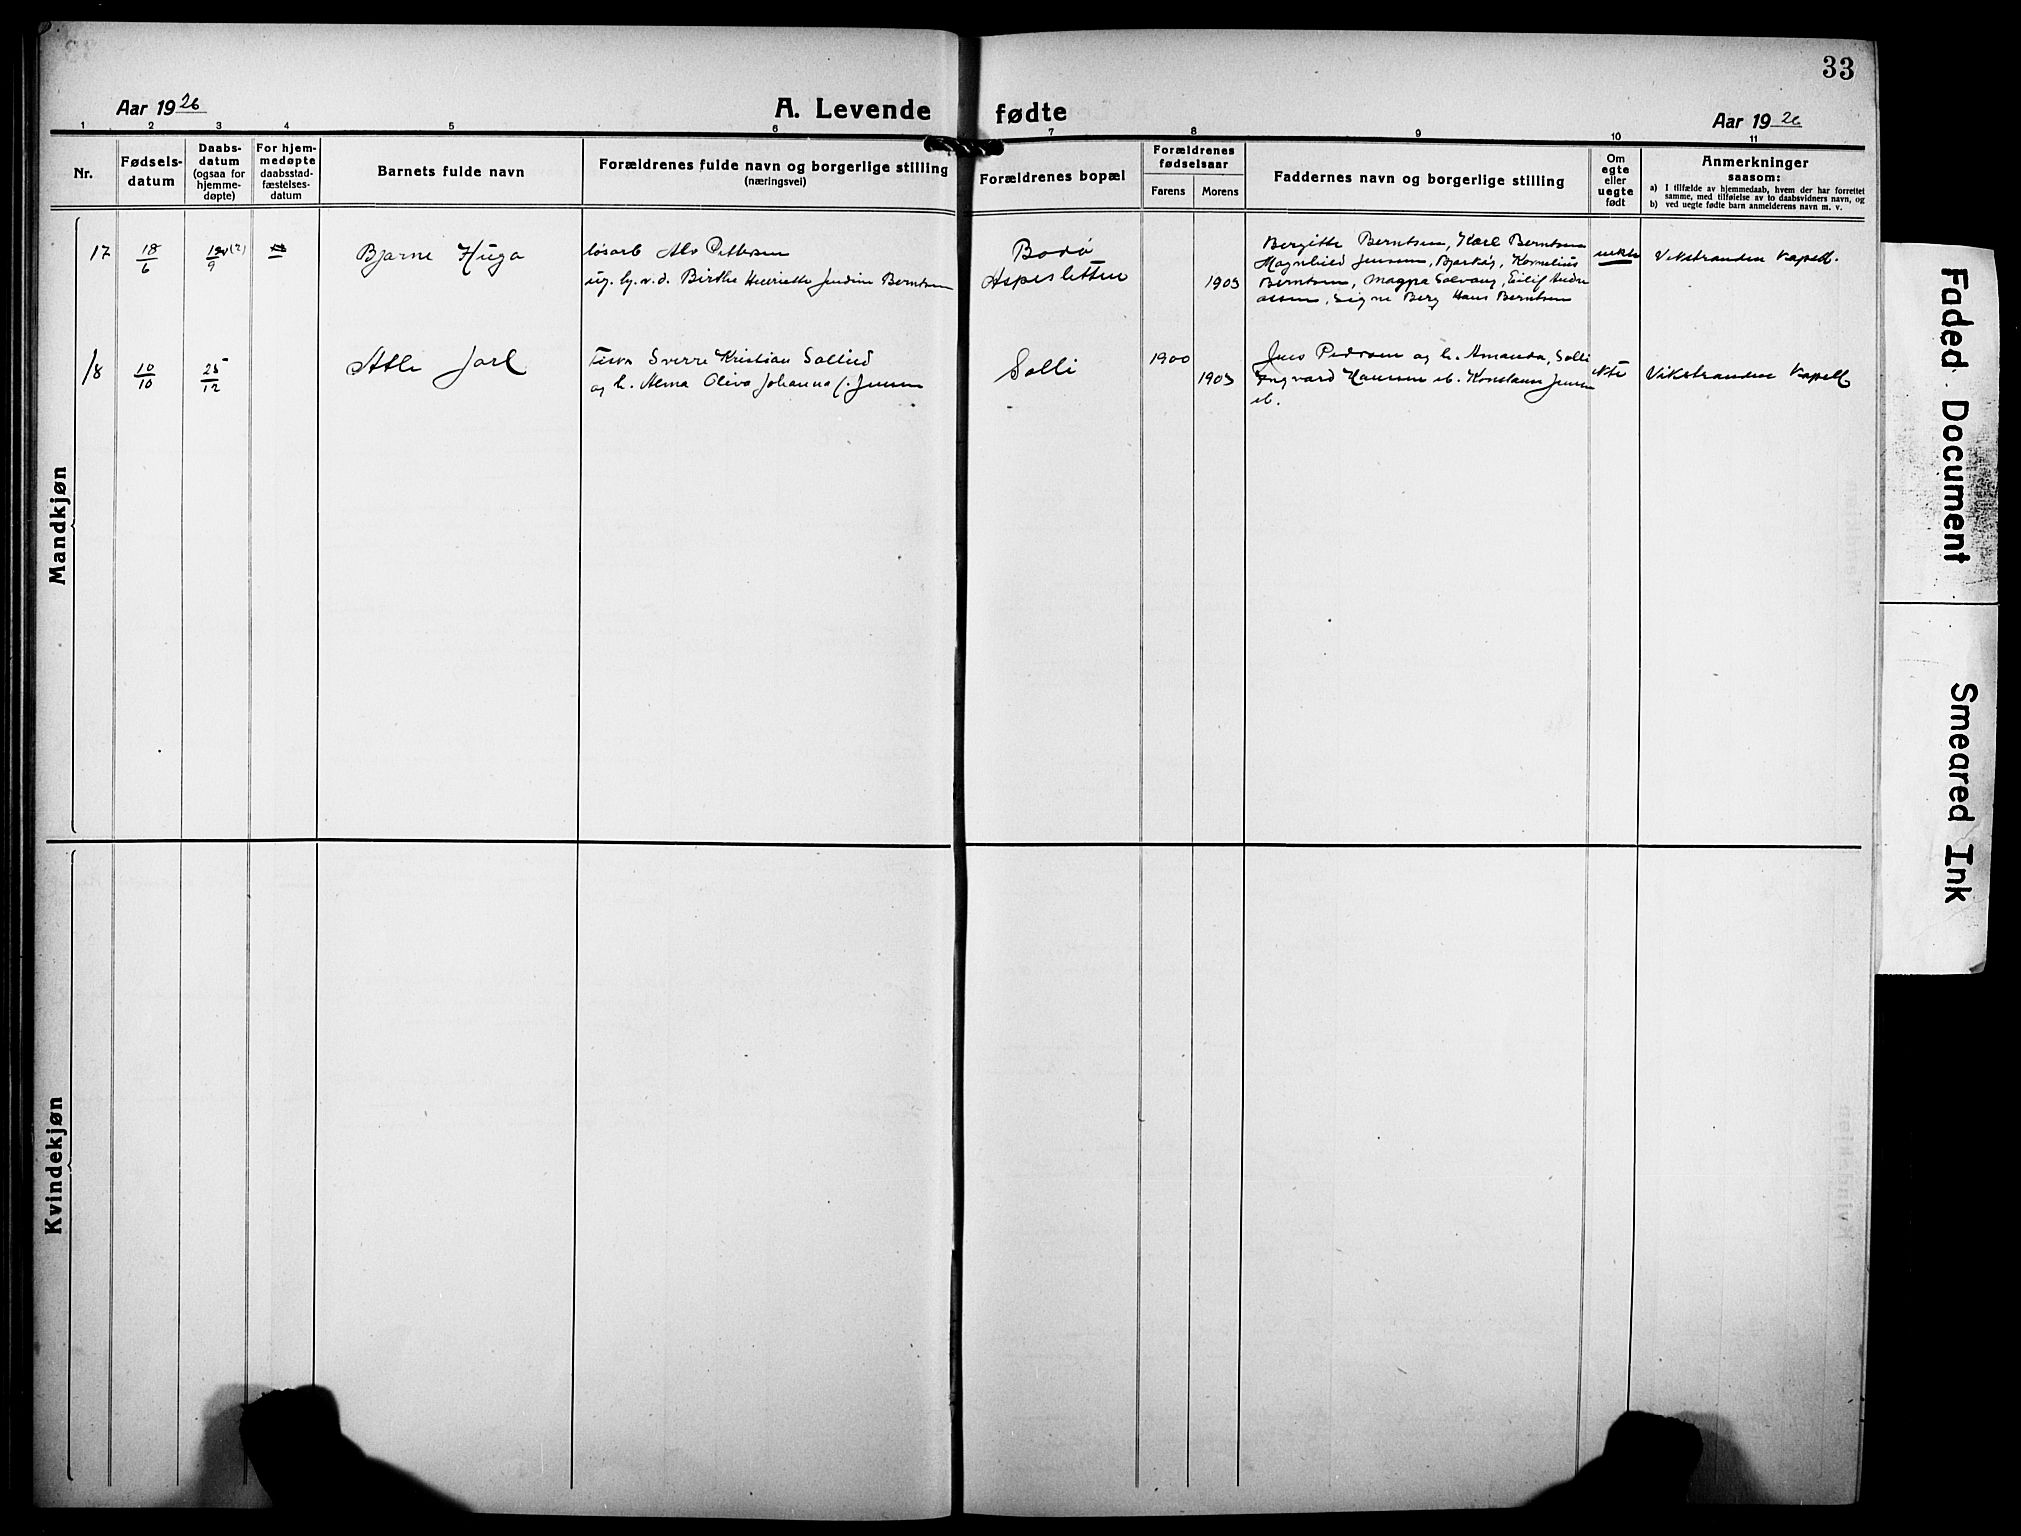 33
Aar 1926
A. Levende fødte
Aar 1926
1 2 3 4 5 6 7 8 9 10 11
Nr.
Fødsels-
datum
Daabs-
datum
(ogsaa for
hjemme-
døpte)
For hjem-
medøpte
daabsstad-
fæstelses-
datum
Barnets fulde navn
Forældrenes fulde navn og borgerlige stilling
(næringsvei)
Forældrenes bopæl
Forældrenes
fødselsaar
Farens Morens
Faddernes navn og borgerlige stilling
Om
egte
eller
uegte
født
Anmerkninger
saasom:
a) I tilfælde av hjemmedaab, hvem der har forrettet
samme, med tilføielse av to daabsvidners navn, og
b) ved uegte fødte barn anmelderens navn m. v.
Mandkjøn
17
18/6
Bjarne Hugo
løsarb Alv Pettersen
ug. og. v. d. Birthe Henriette Jendine Berntsen
Bodø
Aspesletten
1903
Bergitte Berntsen, Karl Berntsen
Magnhild Jensen, Bjarkøy, Kornelius
Berntsen, Magna Solvang, Eilif Andre
assen, Signe Berg Hans Berntsen
uekte
Vikstranden Kapell.
18
10/10
25/12
Atle Jarl
Fisker Sverre Kristian Sollied
og h. Alma Oliva Johanna f. Jensen
Solli
1900
1903
Jens Pedersen og h. Amanda, Solli
Ingvard Hansen ib. Konstanse Jensen
ib.
ekte
Vikstranden Kapell
Kvindekjøn
Faded Document
Smeared Ink